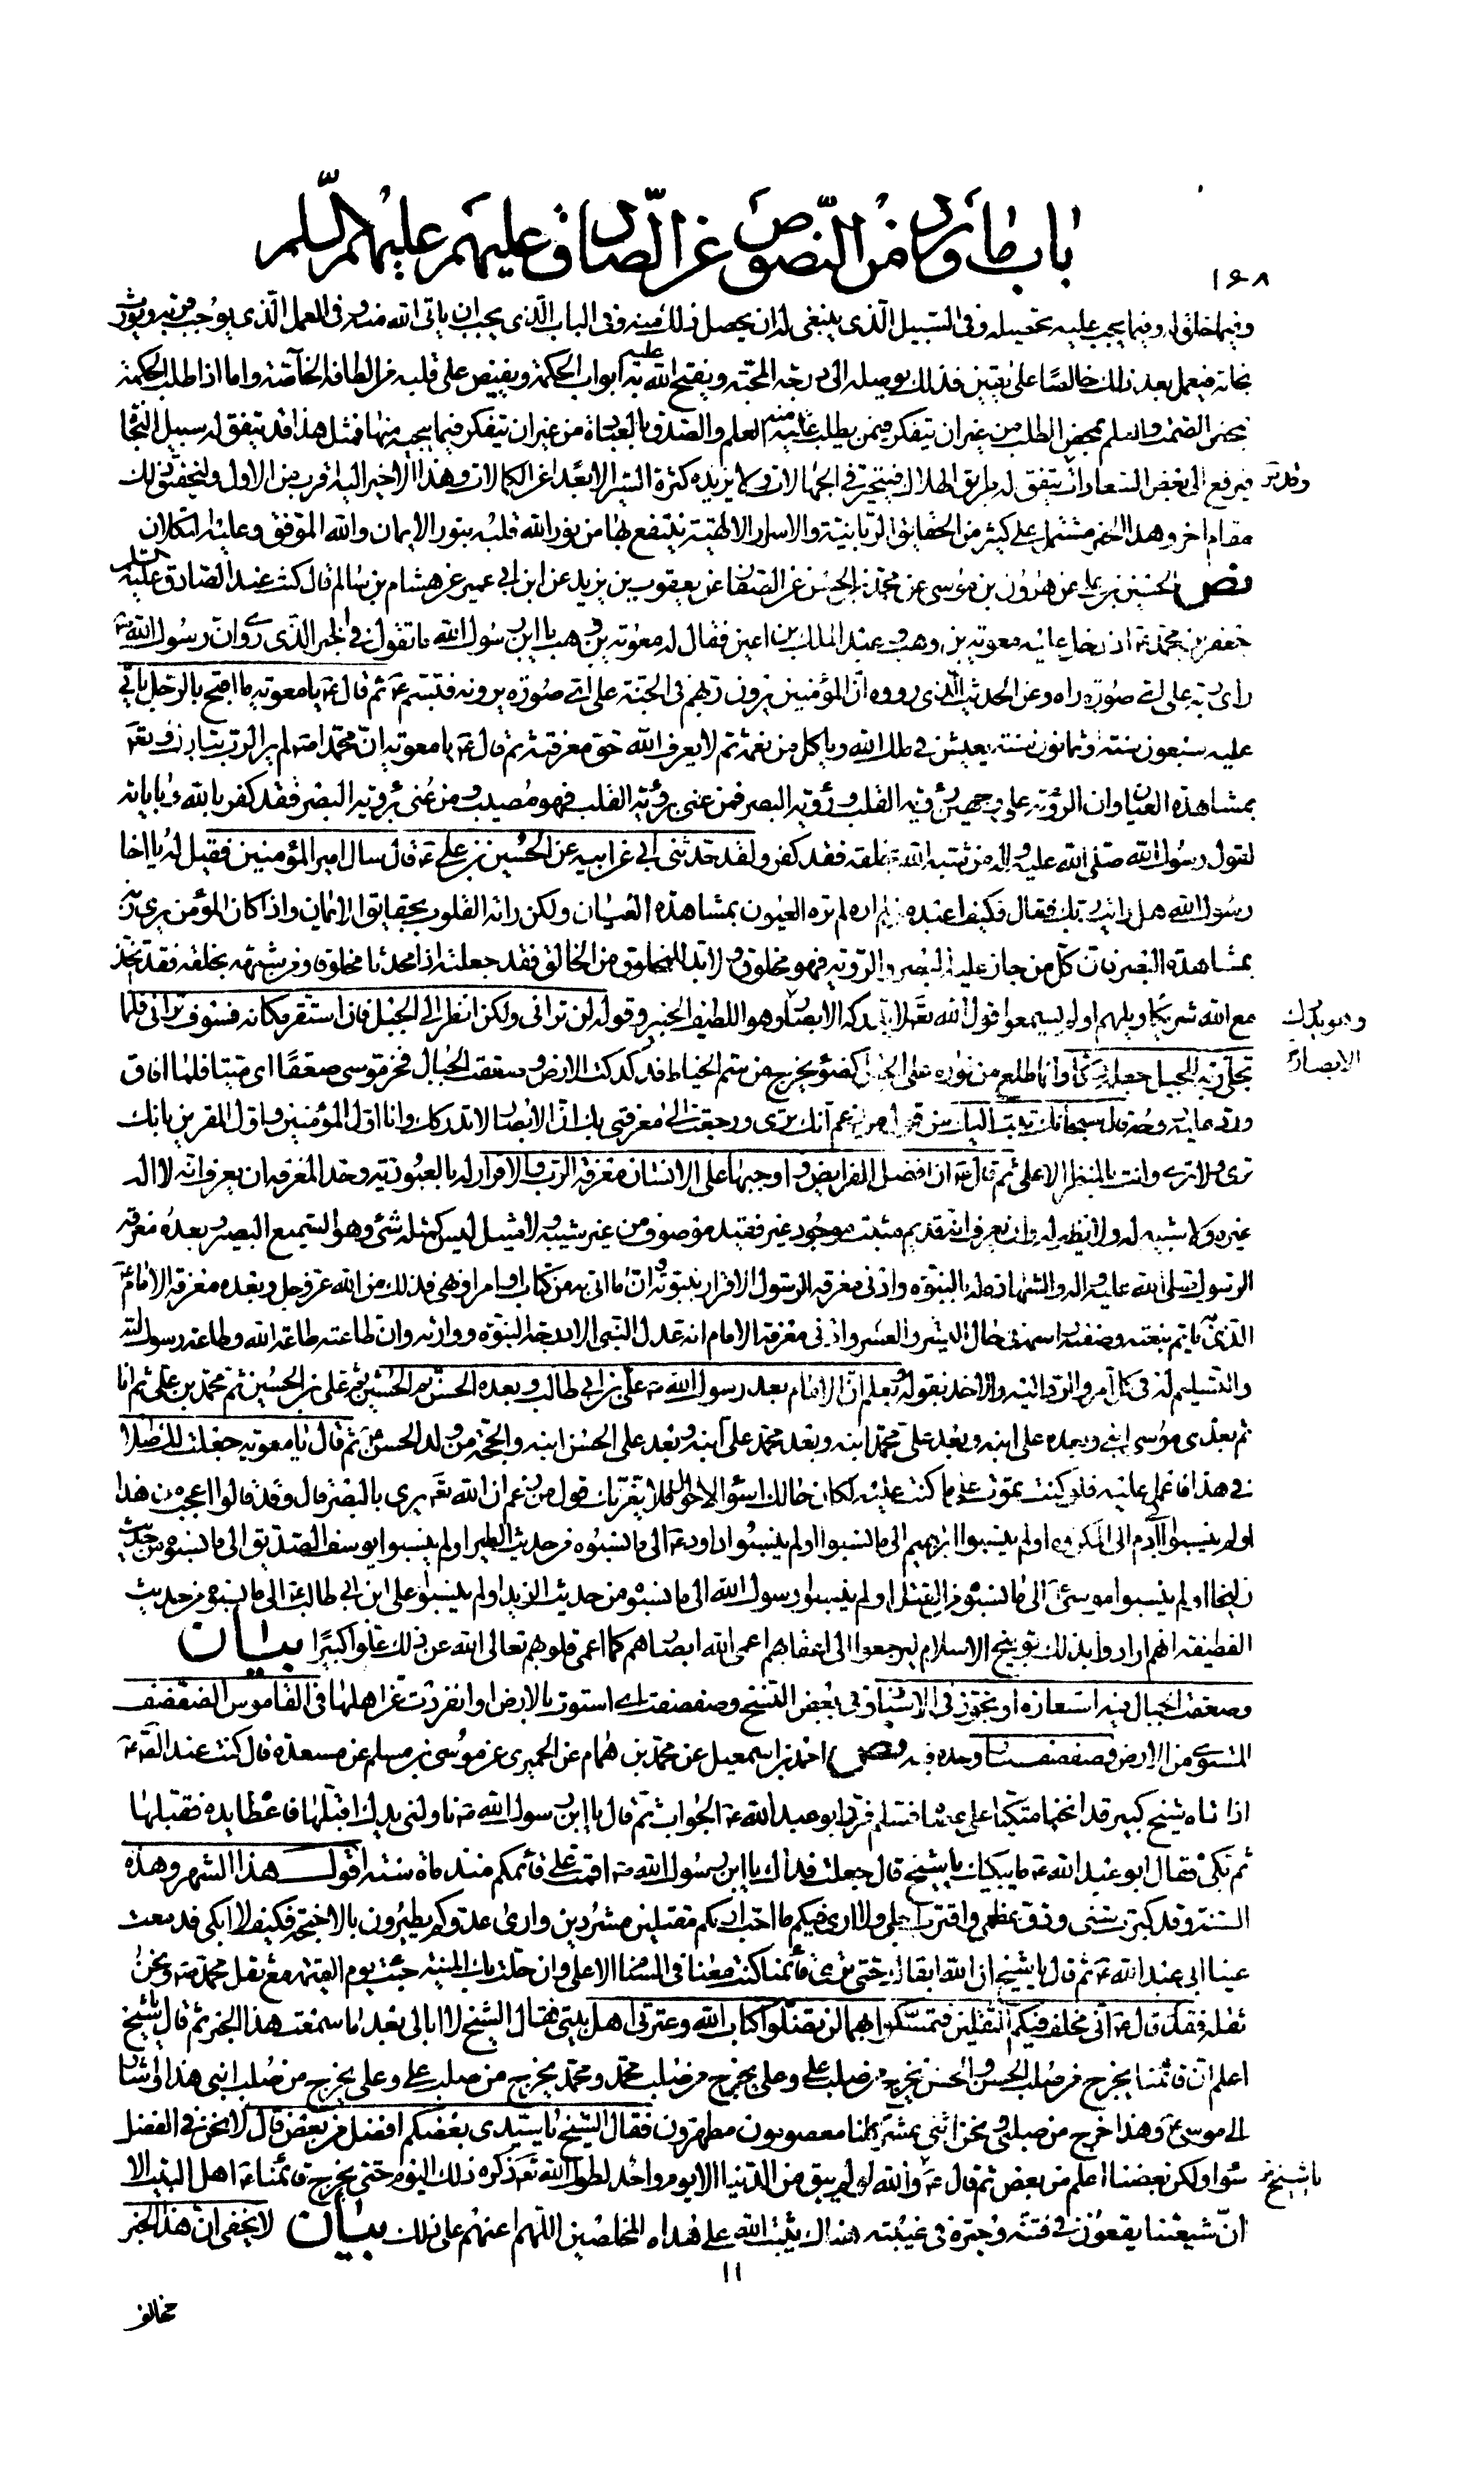 باب ما ورد من النصوص عن الصادق عليهم عليهم السلم
١٦٨
وفيما خلق له وفيما يجب عليه تحصيله وفى السبيل الّذى ينبغى له ان يحصل ذلك منه وفى الباب الّذى يجب ان ياتى الله منه وفى العمل الّذى يوجب قربه ويورث
نجاته فيعمل بعد ذلك خالصًا على يقين فذلك يوصله الى درجة المحبّة ويفتح الله به عليه ابواب الحكمة ويفيض على قلبه من الطافه الخاصّة واما اذا طلب الحكمة
بمحض الصمت والعلم بمحض الطلب من غير ان يتفكر فيمن يطلب منه العلم والصدق بالعبادة من غير ان يتفكر فيما ينجيه منها فمثل هذا قد يتفق له سبيل النجاة
فيرفع الى بعض السعادات وقد يتفق له طريق الهلاك فيتحير فى الجهالات ولا يزيده كثرة السير الا بعدًا عن الكمالات وهذا الاخير اليه اقرب من الاول ولتحقيق ذلك
مقام اخر وهذا الخبر مشتمل على كثير من الحقايق الربانيّة والاسرار الالهيّة ينتفع بها من نور الله قلبه بنور الايمان والله الموفق وعليه التكلان
نص الحسين بن على عن هرون بن موسى عن محمّد بن الحسن عن الصفار عن يعقوب بن يزيد عن ابن ابى عمير عن هشام بن سالم قال كنت عند الصادق عليه السلم
جعفر بن محمّد ع اذ دخل عليه معوية بن وهب وعبد الملك بن اعين فقال له معوية بن وهب يا ابن رسول الله ما تقول فى الخبر الّذى روى ان رسول الله ص
راى ربه على اى صورة راه وعن الحديث الّذى رووه انّ المؤمنين يرون ربّهم فى الجنّة على اى صورة يرونه فتبسّم ع ثم قال ع يا معوية ما اقبح بالرجل ياتى
عليه سبعون سنة وثمانون سنة يعيش فى ملك الله وياكل من نعمه ثم لا يعرف الله حق معرفته ثم قال ع يا معوية انّ محمّدا ص لم ير الرب تبارك وتع
بمشاهدة العيان وان الرؤية على وجهين رؤية القلب ورؤية البصر فمن عنى برؤية القلب فهو مصيب ومن عنى برؤية البصر فقد كفر بالله وباياته
لقول رسول الله صلّى الله عليه واله من شبه الله بخلقه فقد كفر ولقد حدثنى ابى عن ابيه عن الحسين بن على ع قال سال امير المؤمنين فقيل له يا اخا
رسول الله هل رايت ربك فقال فكيف اعبد من لم اره لم تره العيون بمشاهدة العيان ولكن راته القلوب بحقايق الايمان واذا كان المؤمن يرى ربّه
بمشاهدة البصر فان كلّ من جاز عليه البصر والرؤية فهو مخلوق ولا بد للمخلوق من الخالق فقد جعلته اذا محدثا مخلوقا ومن شبّهه بخلقه فقد اتّخذ
مع الله شريكا ويلهم اولم يسمعوا قول الله تع لا تدركه الابصار وهو يدرك الابصار وهو اللطيف الخبير وقوله لن ترانى ولكن انظر الى الجبل فان استقر مكانه فسوف ترانى فلما
تجلى ربه للجبل جعله دكّا وانما طلع من نوره على الجبل كضوء يخرج من سم الخياط فدكدكت الارض وصعقت الجبال فخر موسى صعقًا اى ميتا فلما افاق
ورد عليه روحه قال سبحانك تبت اليك من قول من زعم انك ترى ورجعت الى معرفتى بك ان الابصار لا تدركك وانا اول المؤمنين واول المقرين بانك
ترى ولا ترى وانت بالمنظر الاعلى ثم قال ع ان افضل الفرايض واوجبها على الانسان معرفة الرب والاقرار له بالعبودية وحد المعرفة ان يعرف انه لا اله
غيره ولا شبيه له ولا نظير له وان يعرف انه قديم مثبت موجود غير فقيد موصوف من غير شبيه ولا مثيل ليس كمثله شئ وهو السميع البصير وبعده معرفة
الرسول صلى الله عليه واله والشهادة له بالنبوّة وادنى معرفة الرسول الاقرار بنبوته وانّ ما اتى به من كتاب او امر او نهى فذلك من الله عزّ وجل وبعده معرفة الامام
الذى به ياتم بنعته وصفته واسمه فى حال اليسر والعسر وادنى معرفة الامام انه عدل النبى الا درجة النبوّة ووارثه وان طاعته طاعة الله وطاعة رسول الله
والتسليم له فى كل امر والرد اليه والاخذ بقوله ويعلم انّ الامام بعد رسول الله ص على بن ابى طالب وبعده الحسن ثم الحسين ثم على بن الحسين ثم محمّد بن على ثم انا
ثم بعدى موسى ابنى وبعده على ابنه وبعد على محمّد ابنه وبعد محمّد على ابنه وبعد على الحسن ابنه والحجّة من ولد الحسن ثم قال يا معوية جعلت لك اصلا
فى هذا فاعمل عليه فلو كنت تموت على ما كنت عليه لكان حالك اسوء الاحوال فلا يغرّنك قول من زعم ان الله تع يرى بالبصر قال وقد قالوا اعجب من هذا
اولم ينسبوا آدم الى المكروه اولم ينسبوا ابرهيم الى ما نسبوا اولم ينسبوا داود ع الى ما نسبوه من حديث الطير اولم ينسبوا يوسف الصديق الى ما نسبوه من حديث
زليخا اولم ينسبوا موسى ع الى ما نسبوه من القتل اولم ينسبوا رسول الله الى ما نسبوه من حديث زيد اولم ينسبوا على ابن ابى طالب ع الى ما نسبوه من حديث
القطيفة انهم ارادوا بذلك توبيخ الاسلام ليرجعوا الى اعقابهم اعمى الله ابصارهم كما اعمى قلوبهم تعالى الله عن ذلك علوّا كبيرًا بيان
وصعقت الجبال فيه استعارة او تجوّز فى الاسناد وفى بعض النسخ وصفصفت اى استوت بالارض او انفردت عن اهلها فى القاموس الصفصف
المستوى من الارض وصفصف سار وحده فيه نص احمد بن اسمعيل عن محمّد بن همام عن الحميرى عن موسى بن مسلم عن مسعدة قال كنت عند الصّ ع
اذ اتاه شيخ كبير قد انحنا متكئا على عصاه فسلم فرد ابو عبد الله ع الجواب ثم قال يا ابن رسول الله ص ناولنى يدك اقبّلها فاعطاه يده فقبّلها
ثم بكى فقال ابو عبد الله ع ما يبكيك يا شيخ قال جعلت فداك يا ابن رسول الله ص اقمت على قائمكم منذ مائة سنة اقول هذا الشهر وهذه
السنة وقد كبرت سنى ودق عظمى واقترب اجلى ولا ارى فيكم ما احب اراكم مقتلين مشردين وارى عدوكم يطيرون بالاجنحة فكيف لا ابكى فدمعت
عينا ابى عبد الله ع ثم قال يا شيخ ان الله ابقاك حتى ترى قائمنا كنت معنا فى السنام الاعلى وان حلت بك المنية جئت يوم القيمة مع ثقل محمّد ص ونحن
ثقله فقد قال ع انى مخلف فيكم الثقلين فتمسكوا بهما لن تضلّوا كتاب الله وعترتى اهل بيتى فقال الشيخ لا ابالى بعد ما سمعت هذا الخبر ثم قال يا شيخ
اعلم ان قائمنا يخرج من صلب الحسن والحسن يخرج من صلب على وعلى يخرج من صلب محمّد ومحمّد يخرج من صلب على وعلى يخرج من صلب ابنى هذا واشار
الى موسى ع وهذا خرج من صلبى ونحن اثنى عشر كلنا معصومون مطهرون فقال الشيخ يا سيّدى بعضكم افضل من بعض قال لا نحن فى الفضل
سواء ولكن بعضنا اعلم من بعض ثم قال ع يا شيخ والله لو لم يبق من الدنيا الا يوم واحد لطول الله تع ذكره ذلك اليوم حتى يخرج قائمنا ع اهل البيت الا
انّ شيعتنا يقعون فى فتنة وحيرة فى غيبته هناك يثبت الله على هداه المخلصين اللهم اعنهم على ذلك بيان لا يخفى ان هذا الخبر
١١
مخالف